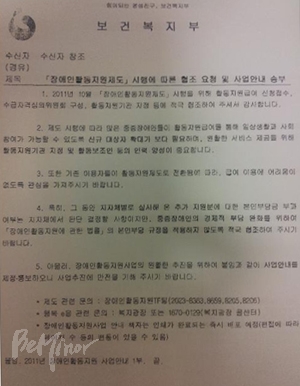 보 건 복 지 부
수신자 수신자 참조
(경유)
제목 「장애인활동지원제도」 시행에 따른 협조 요청 및 사업안내 송부
1. 2011년 10월 「장애인활동지원제도」 시행을 위해 활동지원급여 신청접수,
수급자격심의위원회 구성, 활동지원기관 지정 등에 적극 협조하여 주셔서 감사합니다.
2. 제도 시행에 따라 많은 중증장애인들이 활동지원급여를 통해 일상생활과 사회
참여가 가능할 수 있도록 신규 대상자 확대가 보다 필요하며, 원활한 서비스 제공을 위해
활동지원기관 지정 및 활동보조인 등의 인력 양성이 중요합니다.
3. 또한 기존 이용자들이 활동지원제도로 전환됨에 따라, 급여 이용에 어려움이
없도록 관심을 가져주시기 바랍니다.
4. 특히, 그 동안 지자체별로 실시해 온 추가 지원분에 대한 본인부담금 부과
여부는 지자체에서 판단 결정할 사항이지만, 중증장애인의 경제적 부담 완화를 위하여
「장애인활동지원에 관한 법률」의 본인부담 규정을 적용하지 않도록 적극 협조하여 주시기
바랍니다.
5. 아울러, 장애인활동지원사업의 원활한 추진을 위하여 붙임과 같이 사업안내를
제정·통보하오니 사업추진에 만전을 기해 주시기 바랍니다.
* 제도 관련 문의 : 장애인활동지원TF팀
* 행복e음 관련 문의 : 복지광장 또는 1670-0129(복지광장 콜센터)
* 장애인활동지원 사업 안내 책자는 인쇄가 완료되는 즉시 배포 예정(편집에 따라
페이지 수 등의 변동이 있을 수 있음)
붙임. 2011년 장애인활동지원 사업안내 1부. 끝.
BeMinor